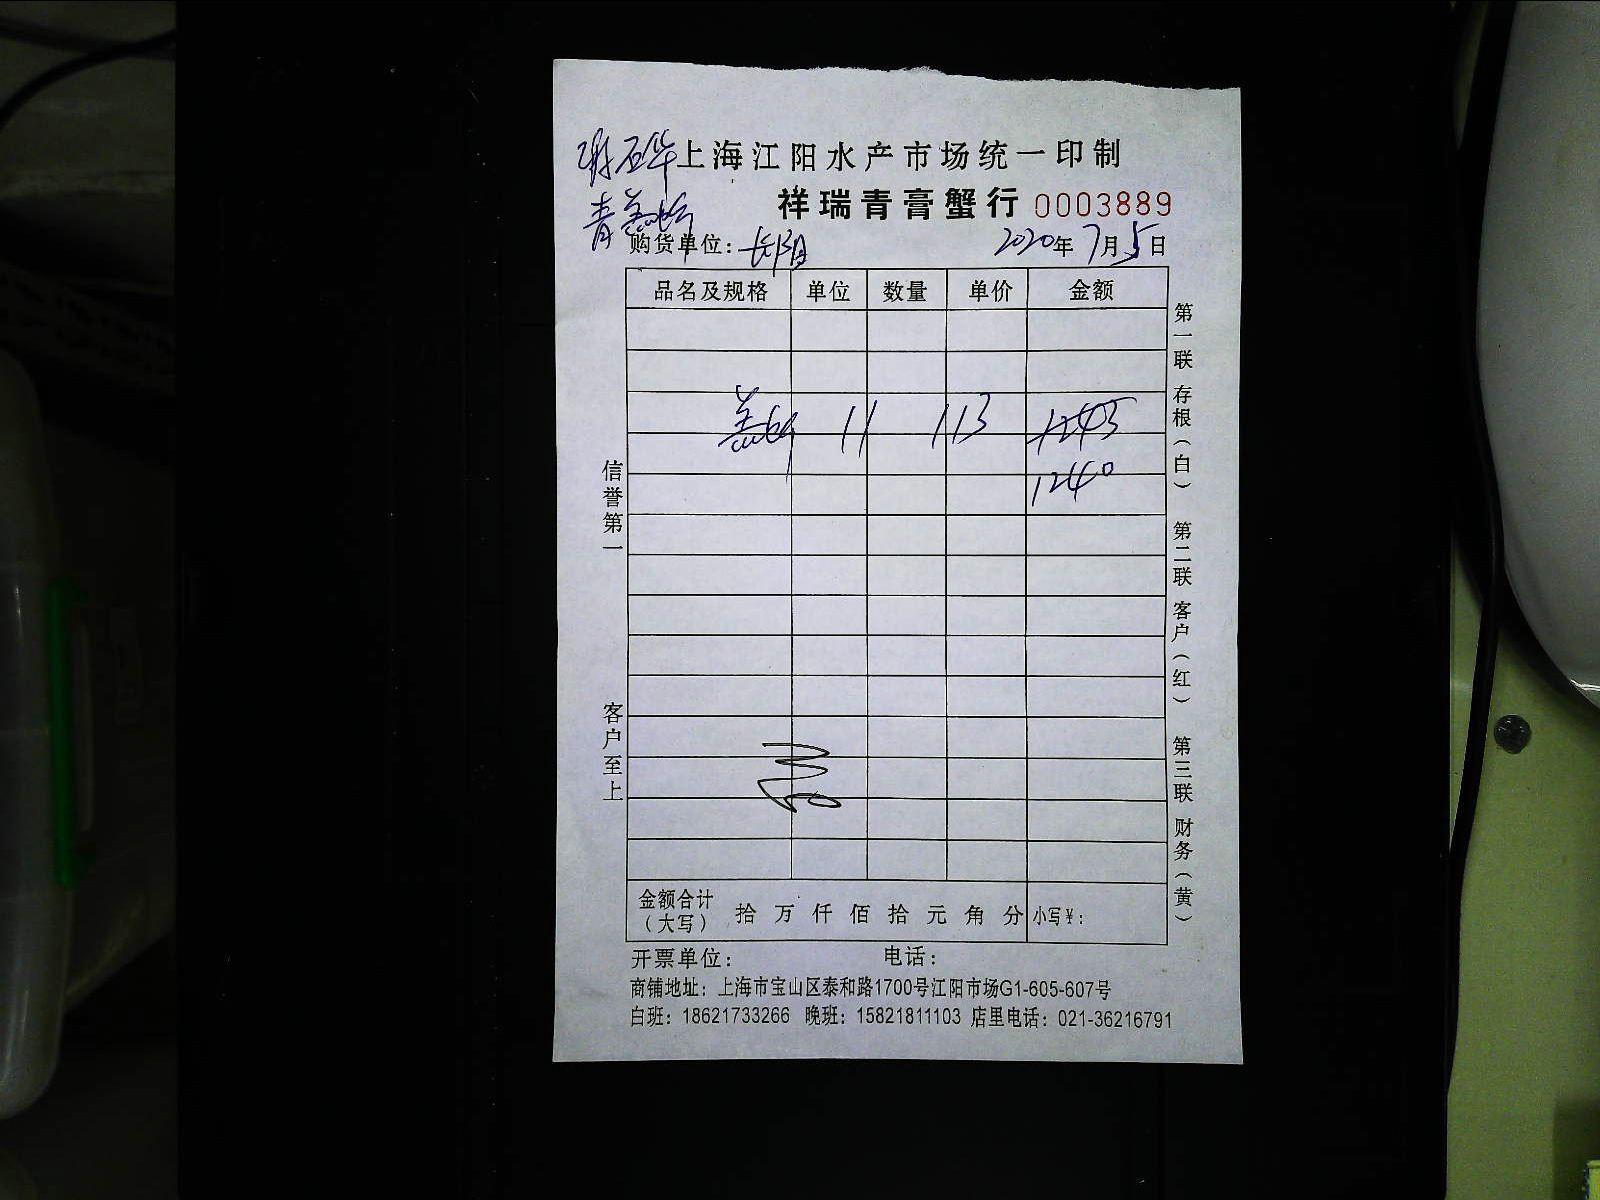 上海江阳水产市场统一印制
祥瑞青膏蟹行 0003889
青
购货单位：长阳 2020年7月5日
品名及规格 单位 数量 单价 金额
11 113 1243
1240
信誉第一
客户至上
第一联 存根（白） 第二联 客户（红） 第三联 财务（黄）
金额合计（大写） 拾 万 仟 佰 拾 元 角 分 小写¥：
开票单位： 电话：
商铺地址：上海市宝山区泰和路1700号江阳市场G1-605-607号
白班：18621733266 晚班：15821811103 店里电话：021-36216791